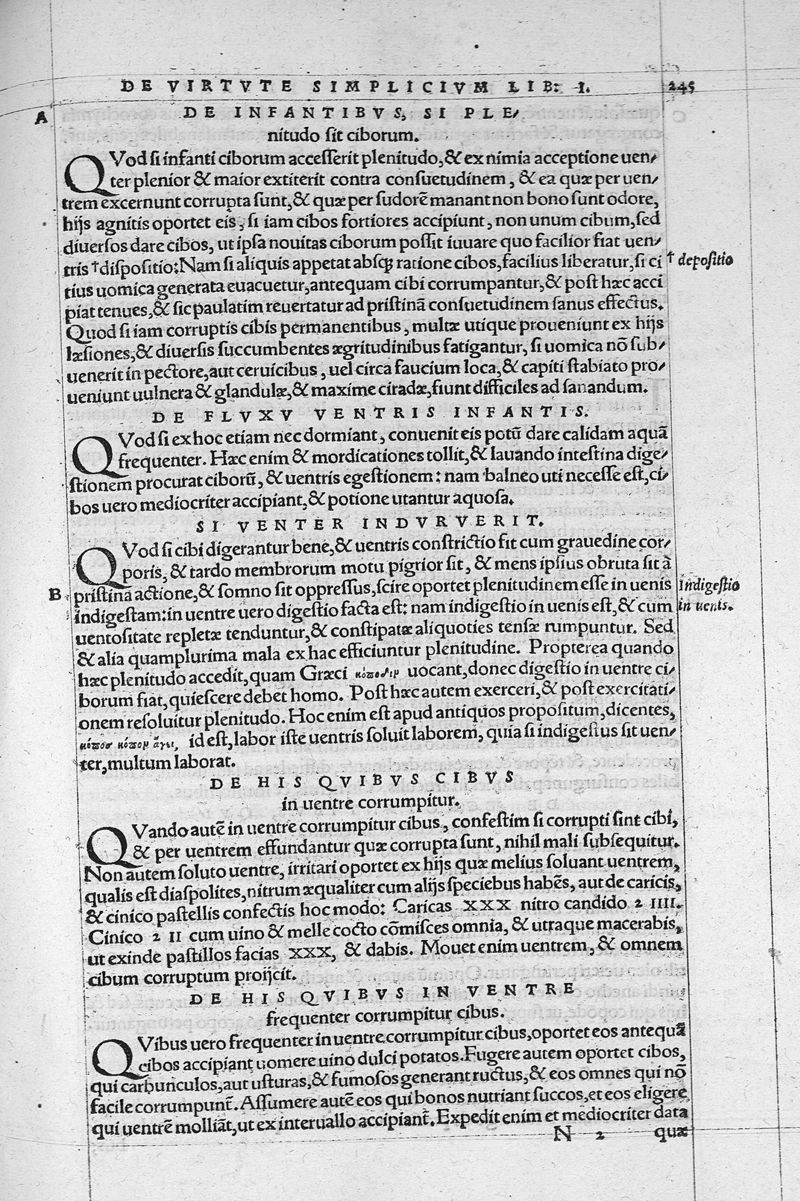 DE VIRTVTE SIMPLICIVM LIB: I. 245
A
DE INFANTIBVS, SI PLE/
nitudo sit ciborum.
QVod si infanti ciborum accesserit plenitudo, & ex nimia acceptione uen/
ter plenior & maior extiterit contra consuetudinem, & ea quæ per uen/
trem excernunt corrupta sunt, & quæ per sudorē manant non bono sunt odore,
hijs agnitis oportet eis, si iam cibos fortiores accipiunt, non unum cibum, sed
diuersos dare cibos, ut ipsa nouitas ciborum possit iuuare quo facilior fiat uen/
tris †dispositio: Nam si aliquis appetat absq; ratione cibos, facilius liberatur, si ci
† depositio
tius uomica generata euacuetur, antequam cibi corrumpantur, & post hæc acci
piat tenues, & sic paulatim reuertatur ad pristinā consuetudinem sanus effectus.
Quod si iam corruptis cibis permanentibus, multæ utique proueniunt ex hijs
læsiones, & diuersis succumbentes ægritudinibus fatigantur, si uomica nō sub/
uenerit in pectore, aut ceruicibus, uel circa faucium loca, & capiti stabiato pro/
ueniunt uulnera & glandulæ, & maxime ciradæ, fiunt difficiles ad sanandum.
DE FLVXV VENTRIS INFANTIS.
QVod si ex hoc etiam nec dormiant, conuenit eis potū dare calidam aquā
frequenter. Hæc enim & mordicationes tollit, & lauando intestina dige/
stionem procurat ciborū, & uentris egestionem: nam balneo uti necesse est, ci/
bos uero mediocriter accipiant, & potione utantur aquosa.
SI VENTER INDVRVERIT.
QVod si cibi digerantur bene, & uentris constrictio fit cum grauedine cor/
poris, & tardo membrorum motu pigrior sit, & mens ipsius obruta sit ā
B
pristinā actione, & somno sit oppressus, scire oportet plenitudinem esse in uenis
Indigestio
indigestam: in uentre uero digestio facta est: nam indigestio in uenis est, & cum
in uenis.
uentositate repletæ tenduntur, & constipatæ aliquoties tensæ rumpuntur. Sed
& alia quamplurima mala ex hac efficiuntur plenitudine. Propterea quando
hæc plenitudo accedit, quam Græci uocant, donec digestio in uentre ci/
borum fiat, quiescere debet homo. Post hæc autem exerceri, & post exercitati/
onem resoluitur plenitudo. Hoc enim est apud antiquos propositum, dicentes,
id est, labor iste uentris soluit laborem, quia si indigestus sit uen/
ter, multum laborat.
DE HIS QVIBVS CIBVS
in uentre corrumpitur.
QVando autē in uentre corrumpitur cibus, confestim si corrupti sint cibi,
& per uentrem effundantur quæ corrupta sunt, nihil mali subsequitur.
Non autem soluto uentre, irritari oportet ex hijs quæ melius soluant uentrem,
qualis est diaspolites, nitrum æqualiter cum alijs speciebus habēs, aut de caricis,
& cinico pastellis confectis hoc modo: Caricas XXX nitro candido ƻ IIII.
Cinico ƻ II cum uino & melle cocto cōmisces omnia, & utraque macerabis,
ut exinde pastillos facias XXX, & dabis. Mouet enim uentrem, & omnem
cibum corruptum proijcit.
DE HIS QVIBVS IN VENTRE
frequenter corrumpitur cibus.
QVibus uero frequenter in uentre corrumpitur cibus, oportet eos antequā
cibos accipiant uomere uino dulci potatos. Fugere autem oportet cibos,
qui carbunculos, aut usturas, & fumosos generant ructus, & eos omnes qui nō
facile corrumpunt̄. Assumere autē eos qui bonos nutriant succos, et eos eligere
qui uentrē molliāt, ut ex interuallo accipiant̄. Expedit enim et mediocriter data
N 2 quæ